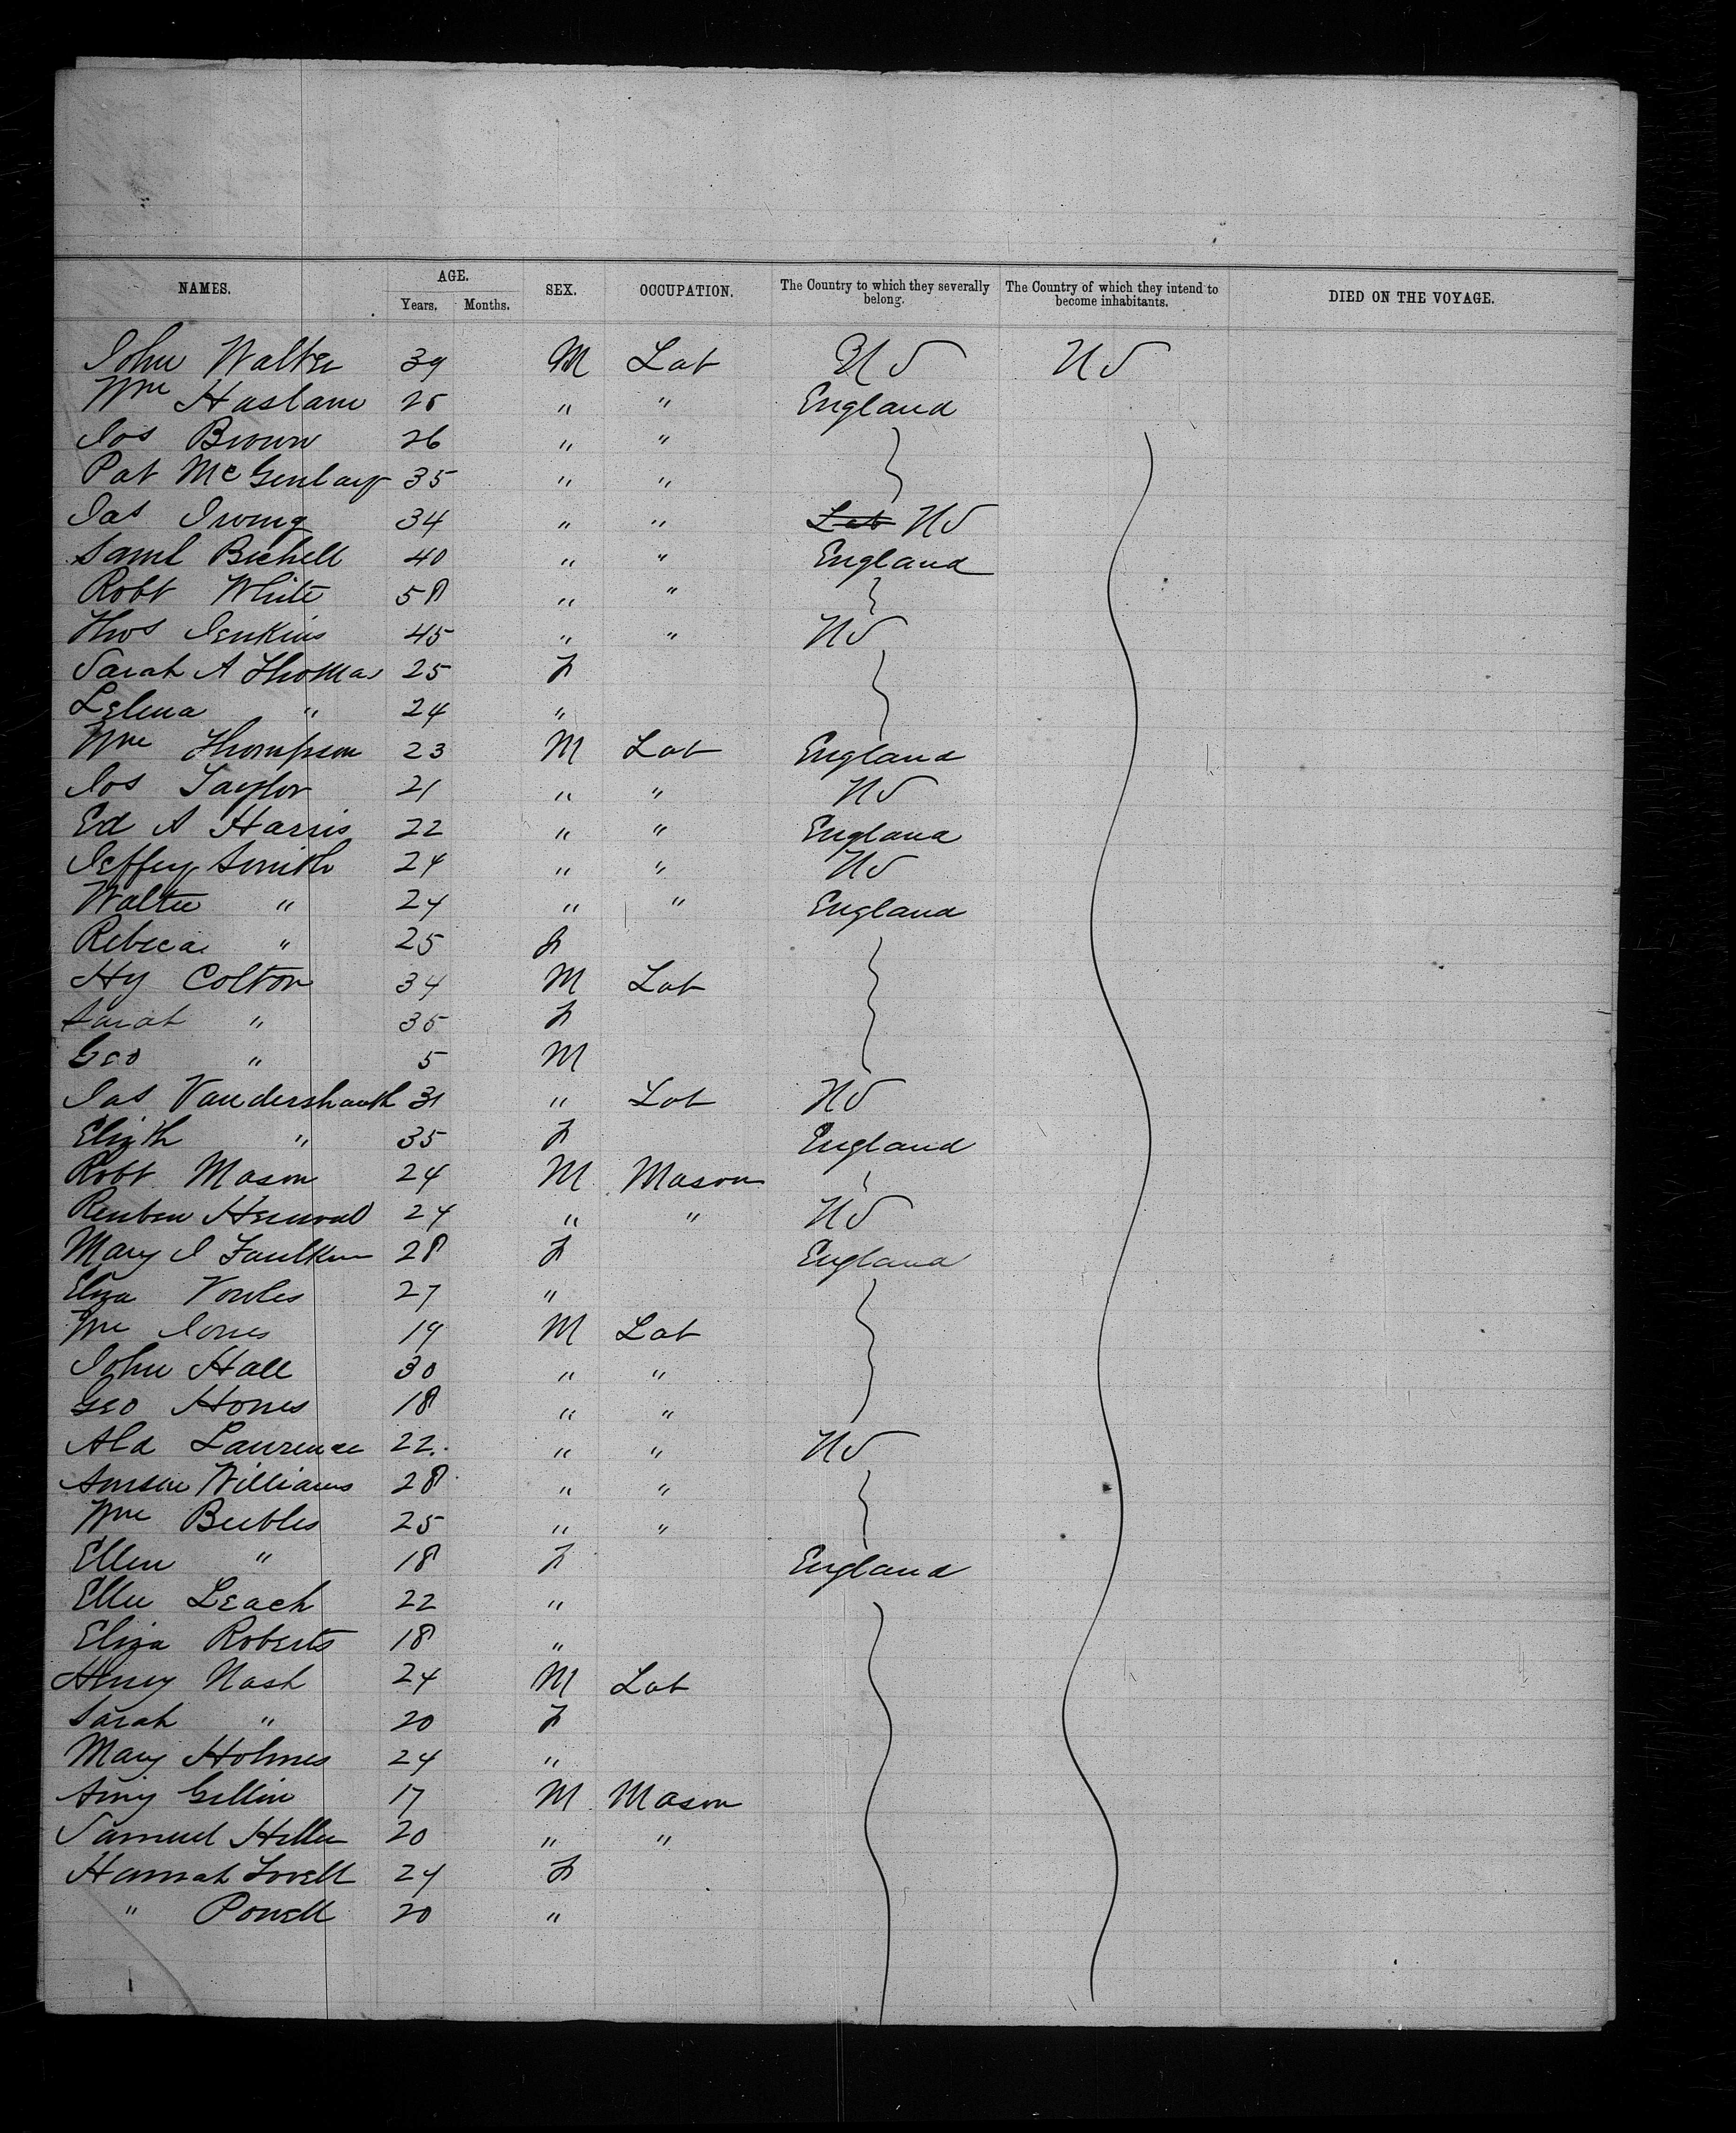 NAMES. AGE. SEX. OCCUPATION. The Country to which they severally belong. The Country of which they intend to become inhabitants. DIED ON THE VOYAGE.
Years. Months.
John Walter 39 M Lab US US
Wm Haslam 25 " " England
Jos Brown 26 " "
Pat 35 " "
Jas Irving 34 " " Lab US
Saml Bichell 40 " " England
Robt White 58 " "
Thos Jenkins 45 " " US
Sarah A Thomas 25 F
Lelena " 24 "
Wm Thompson 23 M Lab England
Jos Taylor 21 " " US
Ed A Harris 22 " " England
Jeffry Smith 24 " " US
Walter " 24 " " England
Rebeca " 25 F
Hy Colton 34 M Lab
Sarah " 35 F
Geo " 5 M
Jas 31 " Lab US
Elizth " 35 F England
Robt Mason 24 M Mason
Reuben 24 " " US
Mary J Faulkner 28 F England
Eliza Vowles 27 "
Wm Jones 19 M Lab
John Hall 30 " "
Geo Hones 18 " "
Ald Laurence 22 " " US
Williams 28 " "
Wm Beebles 25 " "
Ellen " 18 F England
Ellen Leach 22 "
Eliza Roberts 18 "
Henry Nash 24 M Lab
Sarah " 20 F
Mary Holmes 24 "
17 M Mason
Samuel Hiller 20 " "
Hannah Lovell 24 F
" Powell 20 "